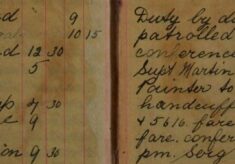 9
10 15
12 30
5
7 30
9
9 30
Duty by da
patrolled
conference
Supt Martin
Painter to
handcuff
+ 5616. fare
fare. confer
pm. Serg